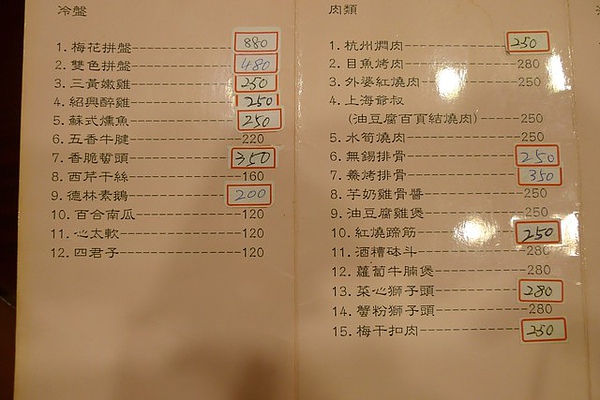 冷盤
1. 梅花拼盤 880
2. 雙色拼盤 480
3. 三黃嫩雞 250
4. 紹興醉雞 250
5. 蘇式燻魚 250
6. 五香牛腱 220
7. 香脆蜇頭 350
8. 西芹干絲 160
9. 德林素鵝 200
10. 百合南瓜 120
11. 心太軟 120
12. 四君子 120
肉類
1. 杭州燜肉 250
2. 目魚烤肉 280
3. 外婆紅燒肉 250
4. 上海爺叔
(油豆腐百頁結燒肉) 250
5. 水筍燒肉 250
6. 無錫排骨 250
7. 薰烤排骨 350
8. 芋奶雞骨醬 250
9. 油豆腐雞煲 250
10. 紅燒蹄筋 250
11. 酒糟砵斗 280
12. 蘿蔔牛腩煲 280
13. 菜心獅子頭 280
14. 蟹粉獅子頭 280
15. 梅干扣肉 250